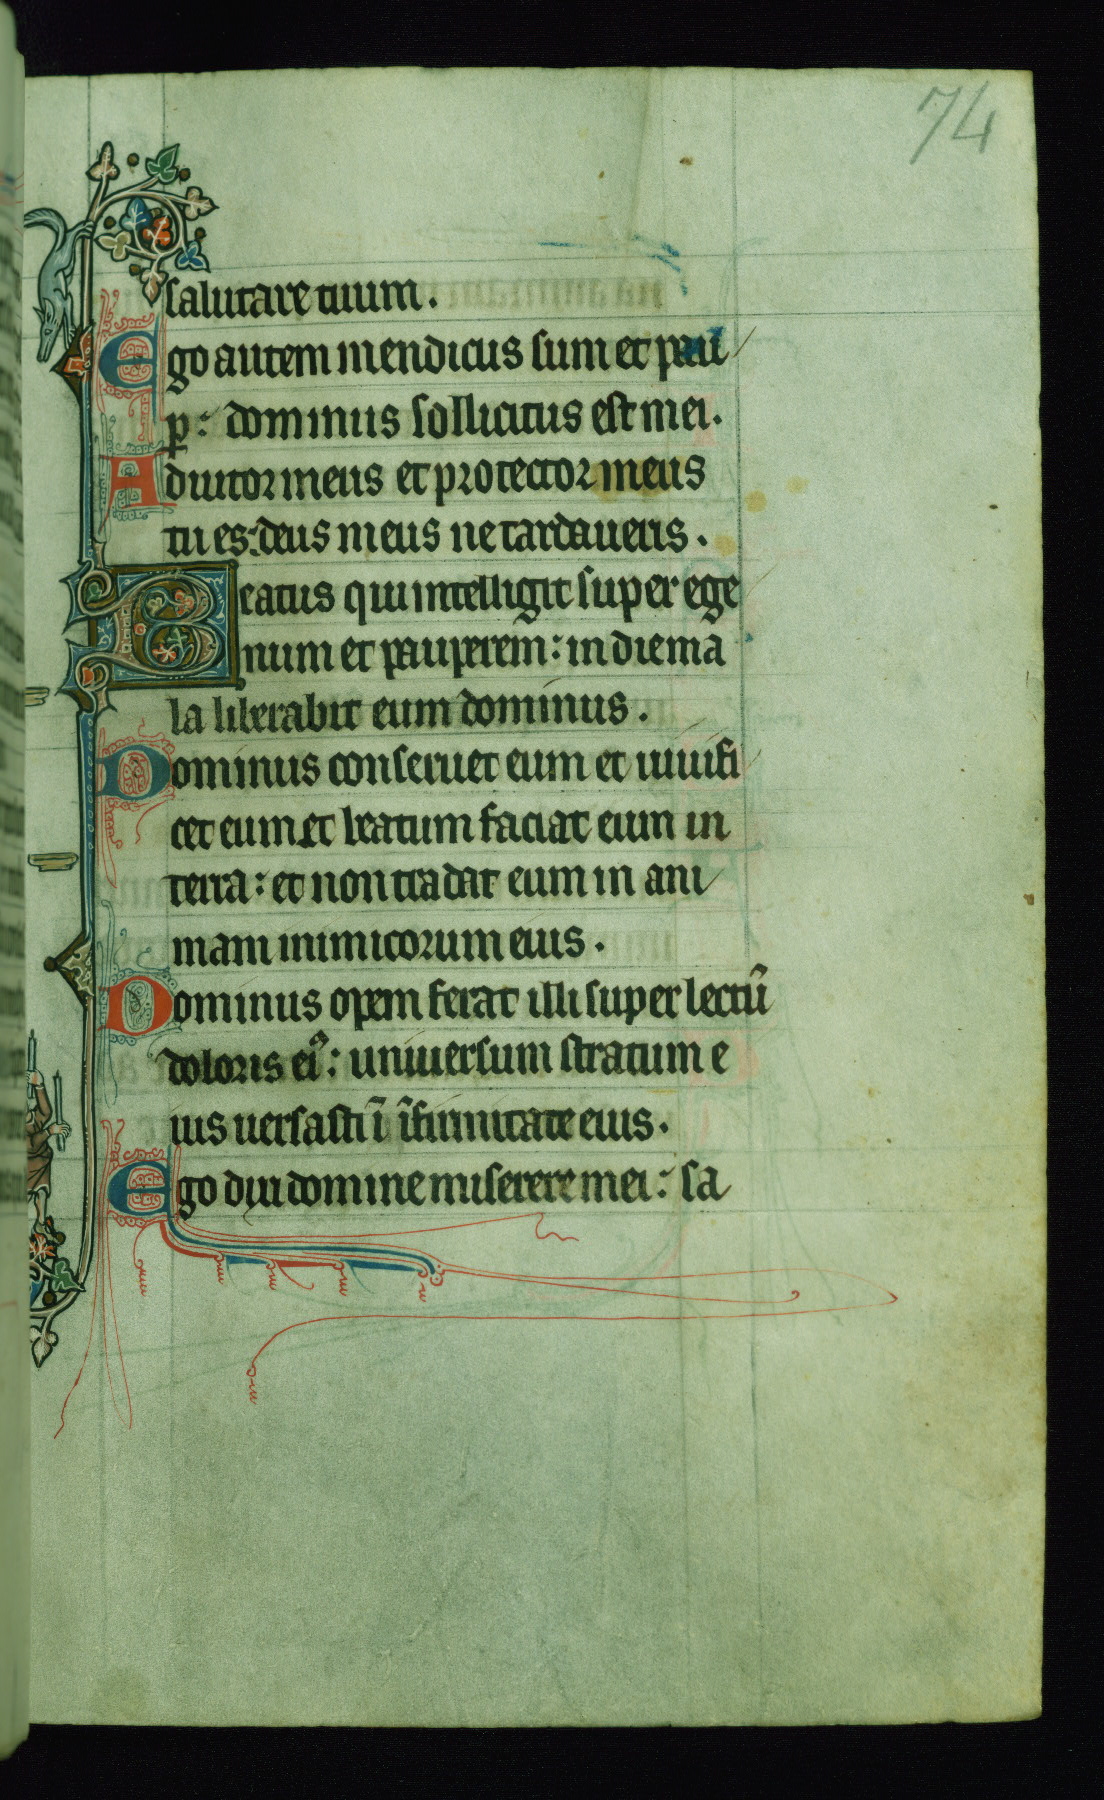 74
salutare tuum.
Ego autem mendicus sum et pau
p: dominus sollicitus est mei.
Adiutor meus et protector meus
tu es: deus meus ne tardaueris.
Beatus qui intelligit super ege
num et pauperem: in die ma
la liberabit eum dominus.
Dominus conseruet eum et uiuifi
cet eum et beatum faciat eum in
terra: et non tradat eum in ani
mam inimicorum eius.
Dominus opem ferat illi super lectū
doloris eiꝰ: uniuersum stratum e
ius uersasti ī īfirmitate eius.
Ego dixi domine miserere mei: sa